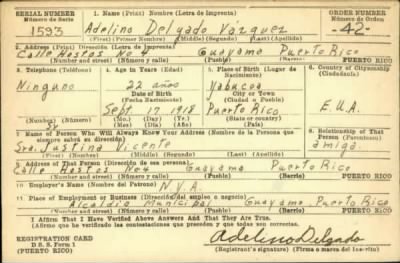 SERIAL NUMBER 1. Name (Print) Nombre (Letra de Imprenta) ORDER NUMBER
Número de Serie Número de Orden
1593 Adelino Delgado Vázquez -42-
(First) (Primer Nombre) (Middle) (Segundo) (Last) (Apellido)
2. Address (Print) Dirección (Letra de Imprenta)
Calle Hostos No 4 Guayama Puerto Rico
(Number and street) (Número y calle) (Pueblo) (Barrio) PUERTO RICO
3. Telephone (Teléfono) 4. Age in Years (Edad) 5. Place of Birth (Lugar de Nacimiento) 6. Country of Citizenship (Ciudadanía)
Ninguno 22 años Yabucoa
Date of Birth City or Town
(Fecha Nacimiento) (Ciudad o Pueblo)
Sept. 17 1918 Puerto Rico E.U.A.
(Number) (Número) (Mo.) (Day) (Yr.) (State or country)
(Mes) (Día) (Año)
7. Name of Person Who Will Always Know Your Address (Nombre de la Persona que siempre sabrá su dirección) 8. Relationship of That Person (Parentesco)
Sra. Justina Vicente amiga
(First) (Primer Nombre) (Middle) (Segundo) (Last) (Apellido)
9. Address of That Person (Dirección de esa persona)
Calle Hostos No 4 Guayama Puerto Rico
(Number and street) (Número y calle) (Pueblo) (Barrio) PUERTO RICO
10. Employer's Name (Nombre del Patrono) N.Y.A.
11. Place of Employment or Business (Dirección del empleo o negocio)
Alcaldía Municipal Guayama, Puerto Rico
(Number and street) (Número y calle) (Pueblo) (Barrio) PUERTO RICO
I Affirm That I Have Verified Above Answers And That They Are True.
(Afirmo que he verificado las contestaciones que preceden y que todas son correctas)
REGISTRATION CARD
D. S. S. Form 1
(PUERTO RICO)
Adelino Delgado
(Registrant's signature) (Firma o marca del Inscrito)